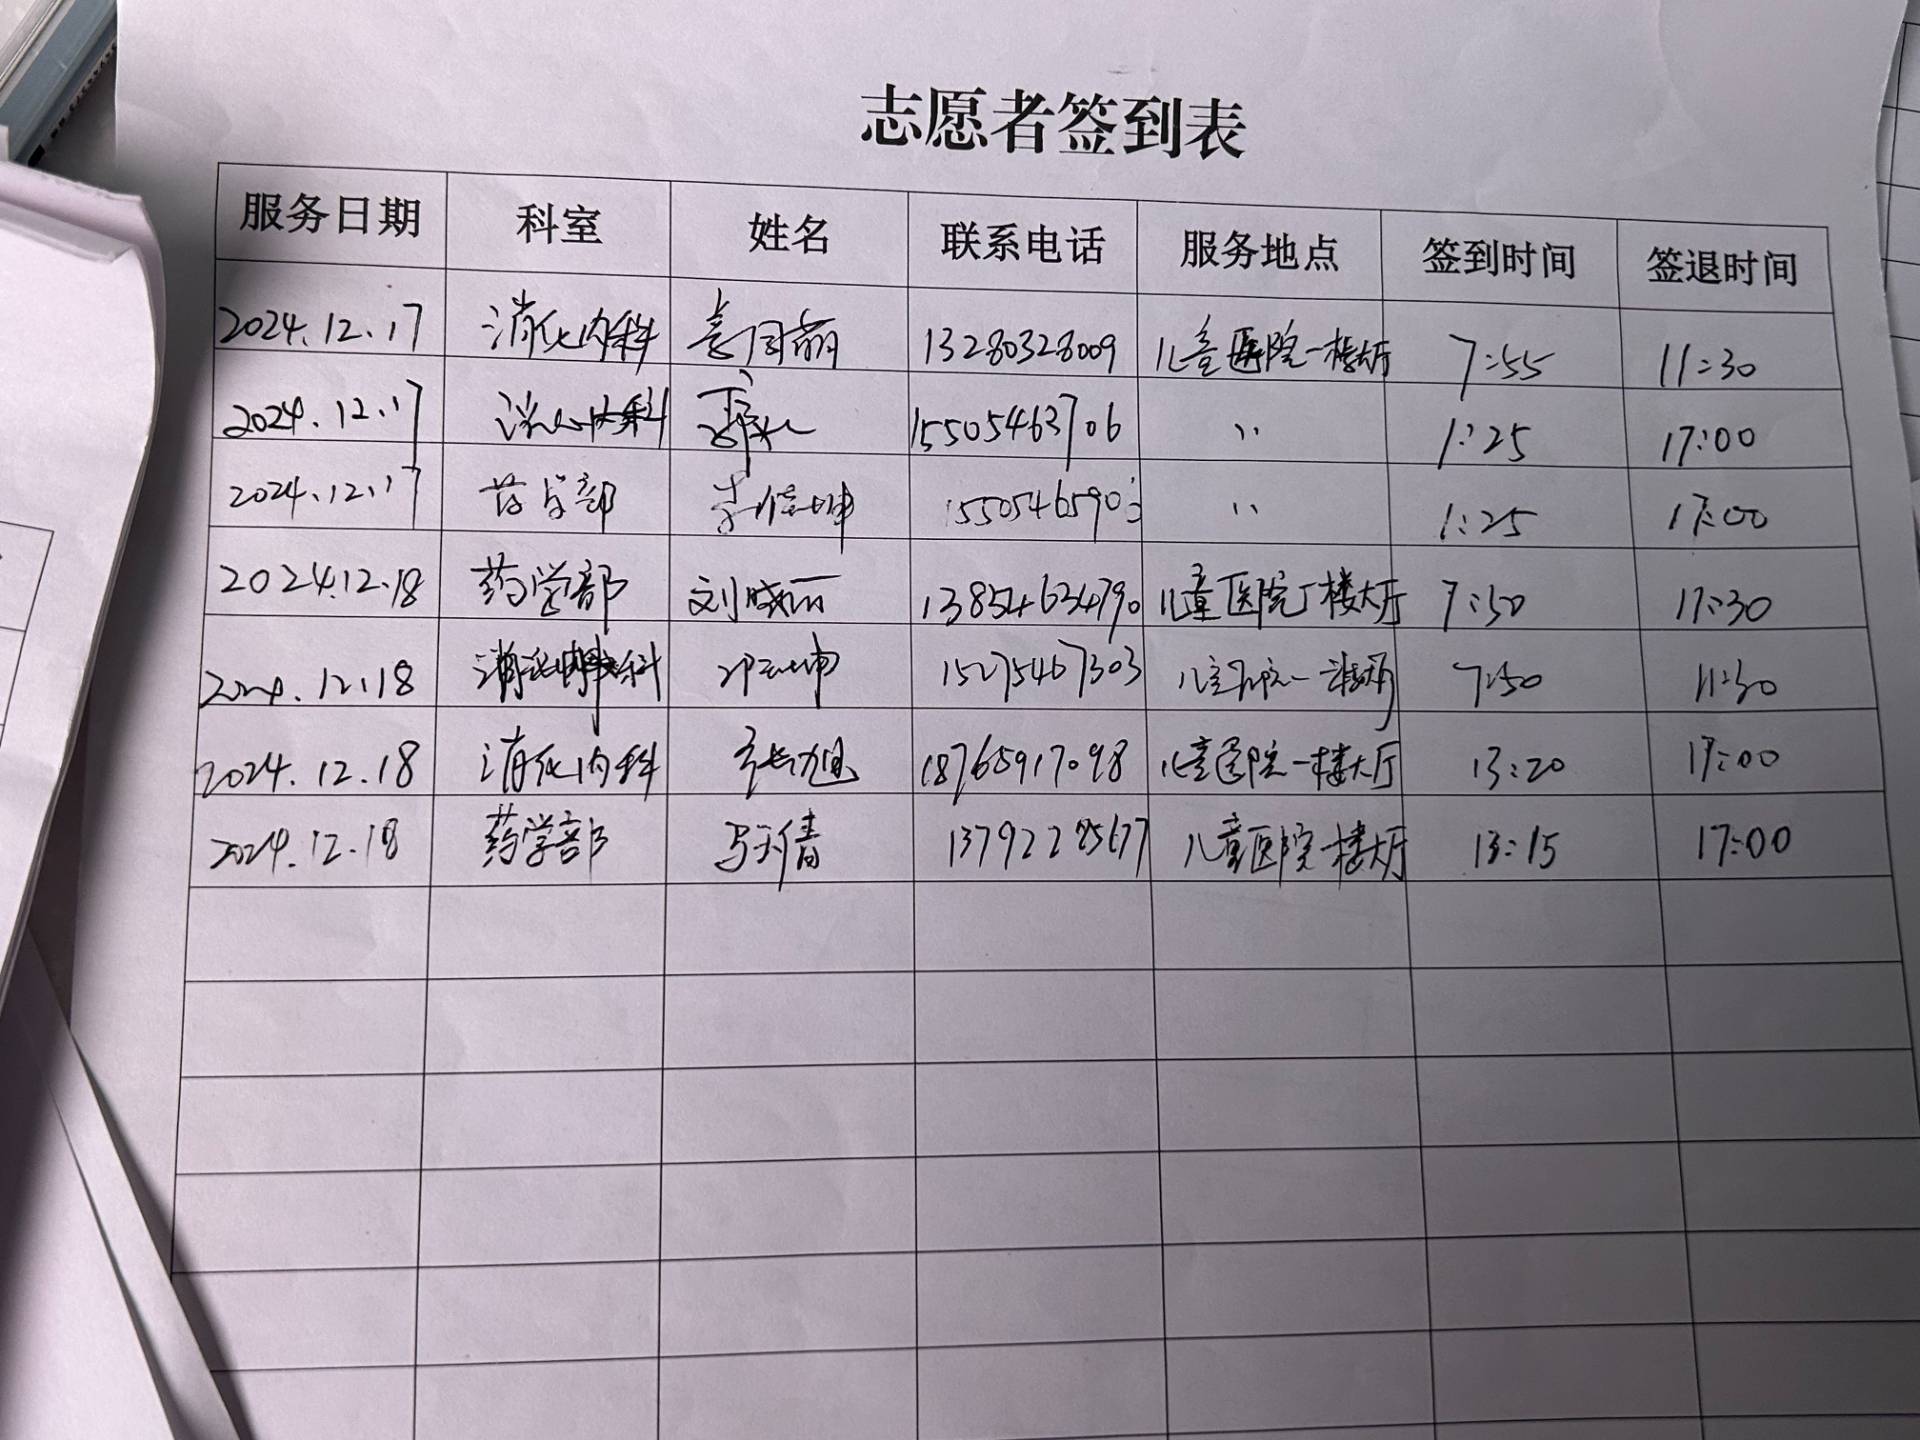 志愿者签到表
服务日期 科室 姓名 联系电话 服务地点 签到时间 签退时间
2024.12.17 消化内科 13280328009 儿童医院一楼大厅 7:55 11:30
2024.12.17 消化内科 15505463706 〃 1:25 17:00
2024.12.17 药学部 1550546590 〃 1:25 17:00
2024.12.18 药学部 刘晓丽 13854634790 儿童医院一楼大厅 7:50 11:30
2024.12.18 消化内科 15275467303 儿童医院一楼大厅 7:50 11:30
2024.12.18 消化内科 18765917098 儿童医院一楼大厅 13:20 17:00
2024.12.18 药学部 13792285677 儿童医院一楼大厅 13:15 17:00